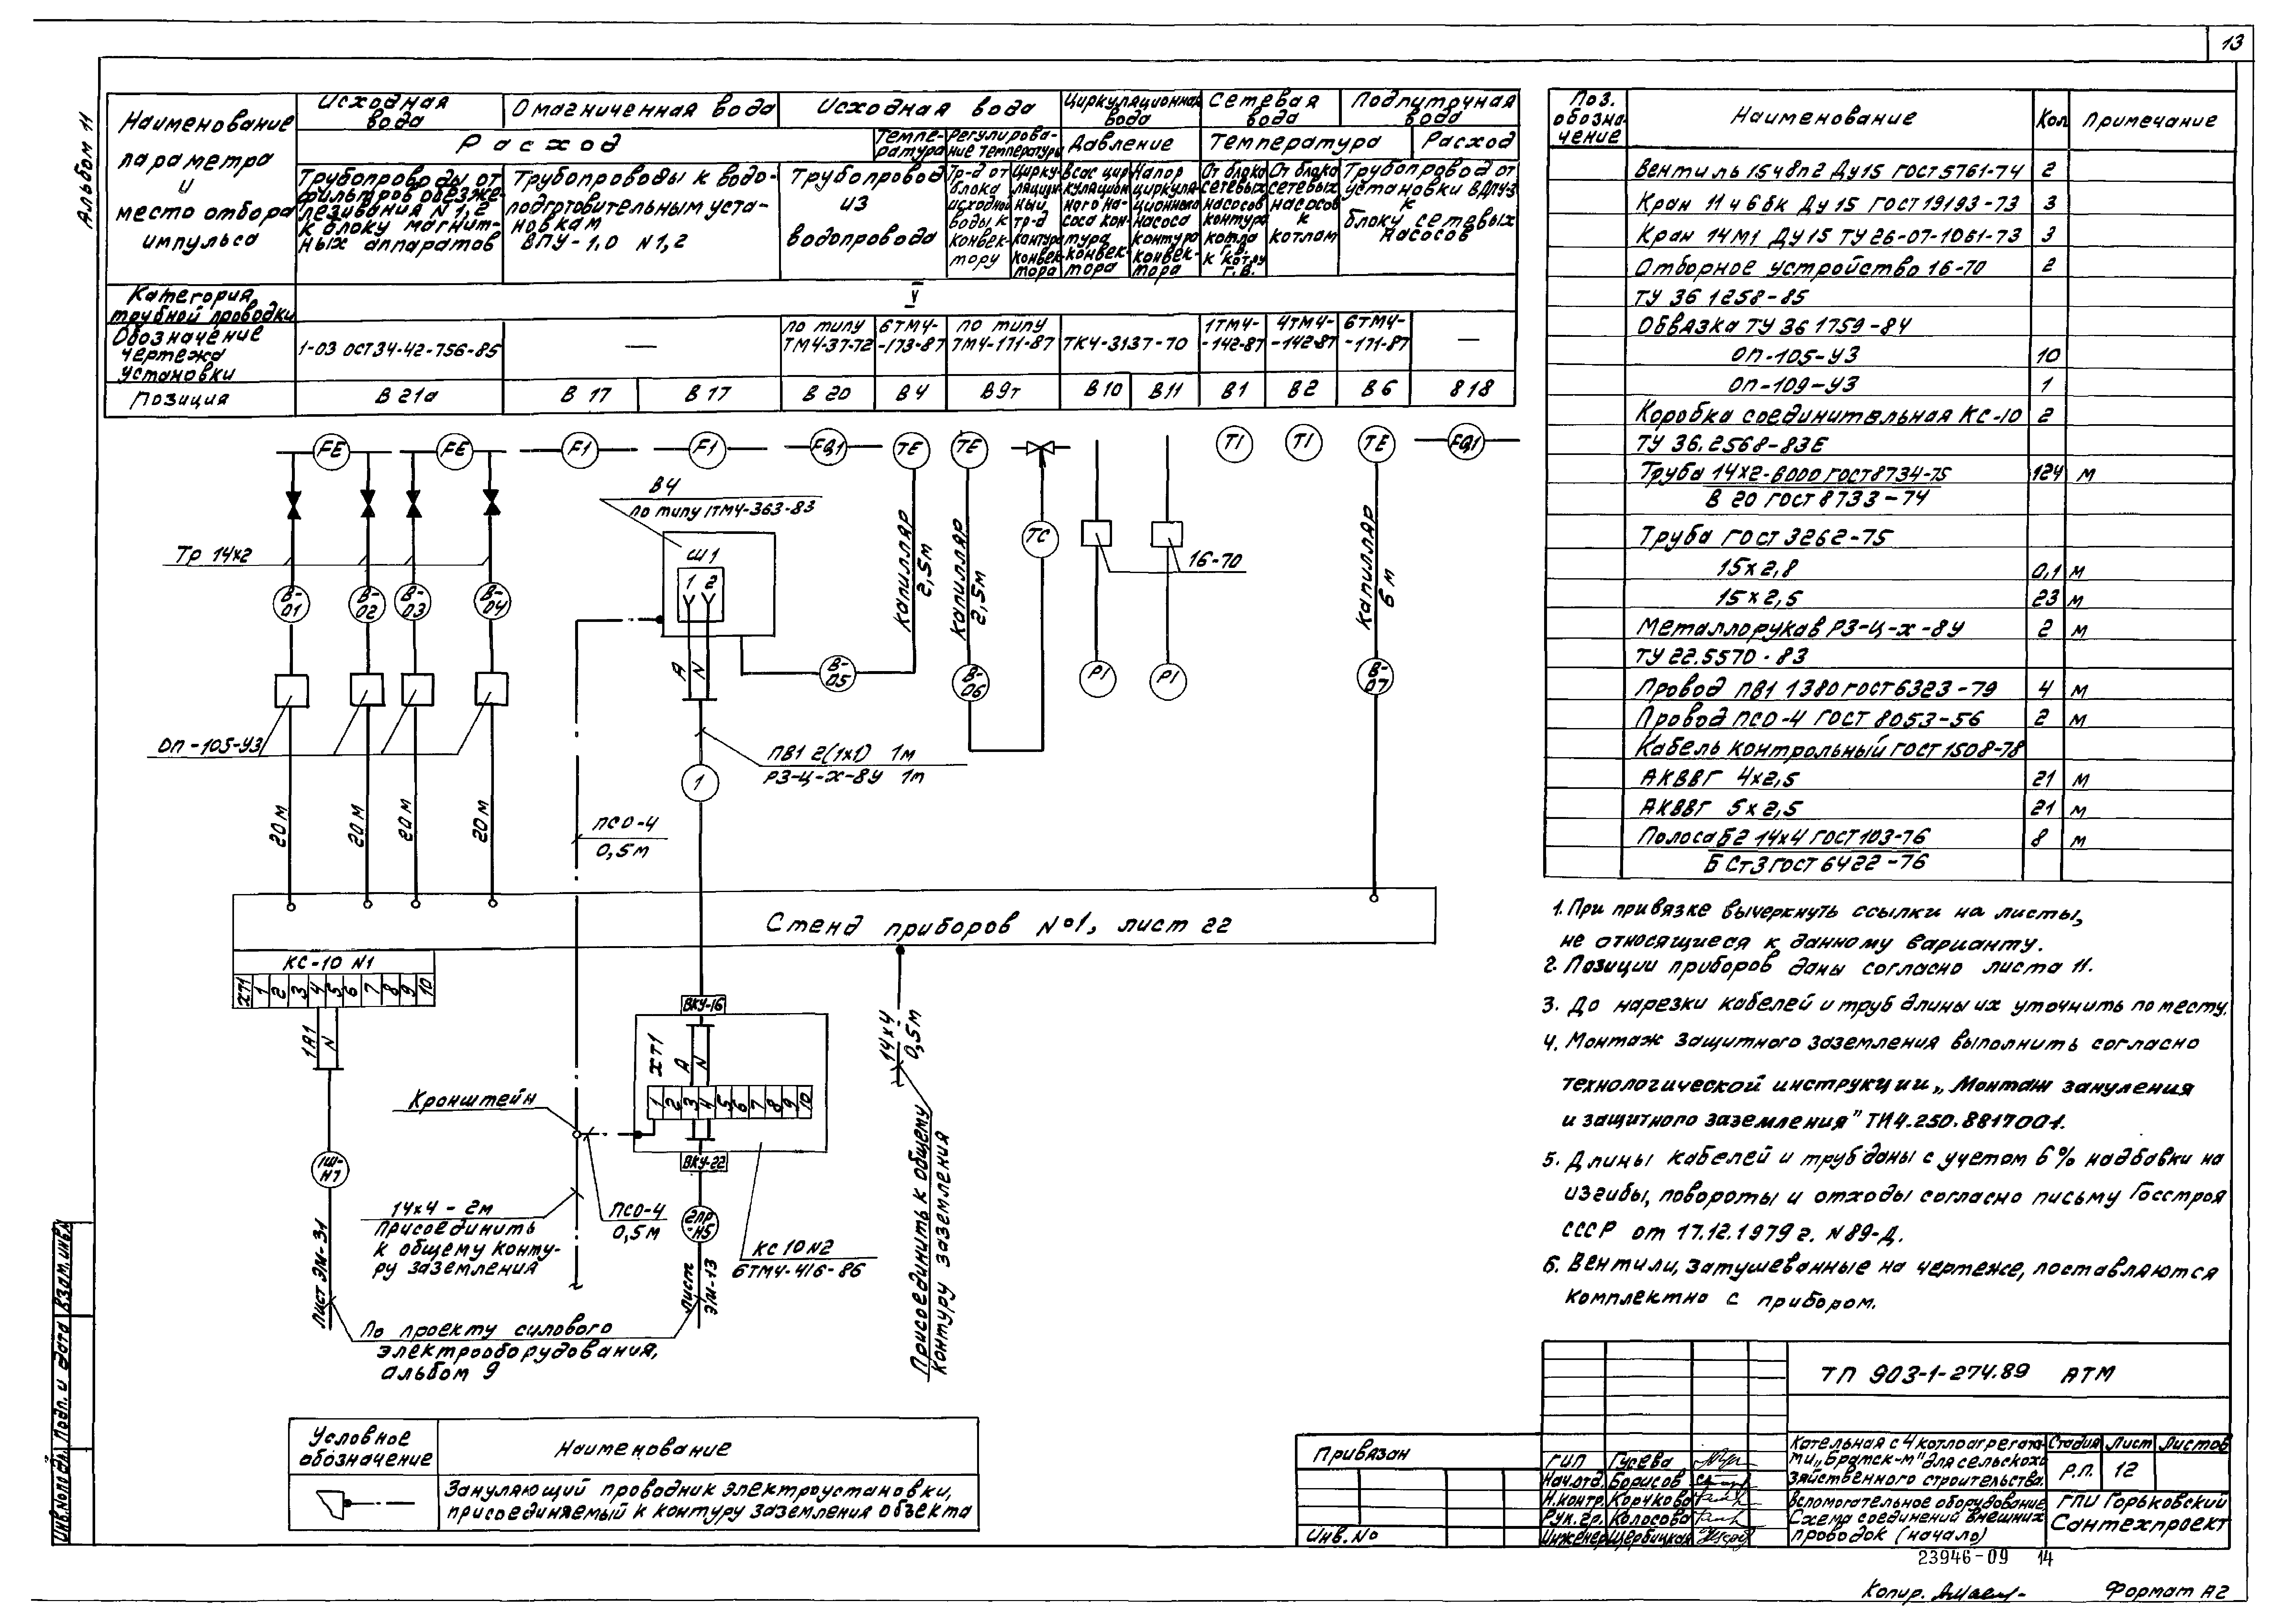 13
Альбом 11
Наименование
параметра
и
место отбора
импульса
Исходная
вода
Омагниченная вода
Исходная вода
Циркуляционная
вода
Сетевая
вода
Подпиточная
вода
Расход
Темпе-
ратура
Регулирова-
ние температуры
Давление
Температура
Расход
Трубопроводы от
фильтров обезже-
лезивания N 1,2
к блоку магнит-
ных аппаратов
Трубопроводы к водо-
подготовительным уста-
новкам
ВПУ-1,0 N1,2
Трубопровод
из
водопровода
Тр-д от
блока
исходной
воды к
конвек-
тору
Цирку-
ляцион-
ный
тр-д
контура
конвек-
тора
Всас цир
куляцион
ного на-
соса кон-
тура
конвек-
тора
Напор
циркуля-
ционного
насоса
контура
конвек-
тора
От блока
сетевых
насосов
контура
котла
к котлу
Г.В.
От блока
сетевых
насосов
к
котлам
Трубопровод от
установки ВДПУ3
к
блоку сетевых
насосов
Категория
трубной проводки
V
Обозначение
чертежа
установки
1-03 ОСТ34-42-756-85
—
по типу
ТМ4-37-72
6ТМ4-
-173-87
по типу
ТМ4-171-87
ТК4-3137-70
1ТМ4-
-142-87
4ТМ4-
-142-87
6ТМ4-
-171-87
—
Позиция
В 21а
В 17
В 17
В 20
В 4
В9т
В10
В11
В1
В2
В 6
В18
FE
FE
F1
F1
FQ1
TE
TE
TI
TI
TE
FQ1
В4
по типу 1ТМ4-363-83
Ш1
1 2
Тр 14х2
В-01
В-02
В-03
В-04
капилляр
2,5м
капилляр
2,5м
TC
16-70
капилляр
6 м
А
N
В-05
В-06
PI
PI
В-07
ОП-105-У3
ПВ1 2(1х1) 1м
РЗ-Ц-Х-8У 1м
1
20м
20м
20м
20м
ПСО-4
0,5м
Стенд приборов №1, лист 22
КС-10 N1
ХТ1 1 2 3 4 5 6 7 8 9 10
1А1
N
ВКУ-16
ХТ1
А
N
1 2 3 4 5 6 7 8 9 10
ВКУ-22
14х4
0,5м
Присоединить к общему
контуру заземления
Кронштейн
1Ш-
Н1
14х4 - 2м
Присоединить
к общему конту-
ру заземления
ПСО-4
0,5м
2ПР
-Н5
КС 10 N2
6ТМ4-416-86
Лист ЭМ-31
лист
ЭМ-13
По проекту силового
электрооборудования,
альбом 9
Условное
обозначение
Наименование
Зануляющий проводник электроустановки,
присоединяемый к контуру заземления объекта
Поз.
обозна-
чение
Наименование
Кол
Примечание
Вентиль 15ч8п2 Ду15 ГОСТ 5761-74 2
Кран 11ч6бк Ду 15 ГОСТ 19193-73 3
Кран 14М1 Ду15 ТУ 26-07-1061-73 3
Отборное устройство 16-70 2
ТУ 36 1258-85
Обвязка ТУ 36 1759-84
ОП-105-У3 10
ОП-109-У3 1
Коробка соединительная КС-10 2
ТУ 36.2568-83Е
Труба 14х2-6000 ГОСТ 8734-75 124 м
В 20 ГОСТ 8733-74
Труба ГОСТ 3262-75
15х2,8 0,1 м
15х2,5 23 м
Металлорукав РЗ-Ц-х-8У 2 м
ТУ 22.5570-83
Провод ПВ1 1 380 ГОСТ 6323-79 4 м
Провод ПСО-4 ГОСТ 8053-56 2 м
Кабель контрольный ГОСТ 1508-78
АКВВГ 4х2,5 21 м
АКВВГ 5х2,5 21 м
Полоса Б2 14х4 ГОСТ 103-76 8 м
Б Ст3 ГОСТ 6422-76
1. При привязке вычеркнуть ссылки на листы,
не относящиеся к данному варианту.
2. Позиции приборов даны согласно листа 11.
3. До нарезки кабелей и труб длины их уточнить по месту.
4. Монтаж защитного заземления выполнить согласно
технологической инструкции „Монтаж зануления
и защитного заземления" ТИ4.250.8817001.
5. Длины кабелей и труб даны с учетом 6% надбавки на
изгибы, повороты и отходы согласно письму Госстроя
СССР от 17.12.1979 г. N 89-Д.
6. Вентили, затушеванные на чертеже, поставляются
комплектно с прибором.
ТП 903-1-274.89 АТМ
Привязан
Инв.No
ГИП Гусева
Нач.отд. Борисов
Н.контр. Корчкова
Рук.гр. Колосова
Инженер Щербицкая
Котельная с 4 котлоагрегата-
ми „Братск-М" для сельскохо-
зяйственного строительства.
Стадия Лист Листов
Р.П. 12
Вспомогательное оборудование.
Схема соединений внешних
проводок (начало)
ГПИ Горьковский
Сантехпроект
23946-09 14
Копир.
Формат А2
Инв.N подл. Подп. и дата Взам.инв.N